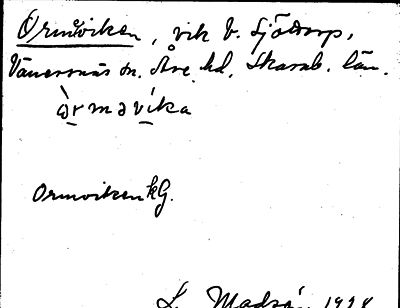 Ormviken, vik V. Sjötorp,
Vänersnäs sn. Åse hd. Skarab. län.
òrmavíka
Ormviken kG.
L. Madsén 1928